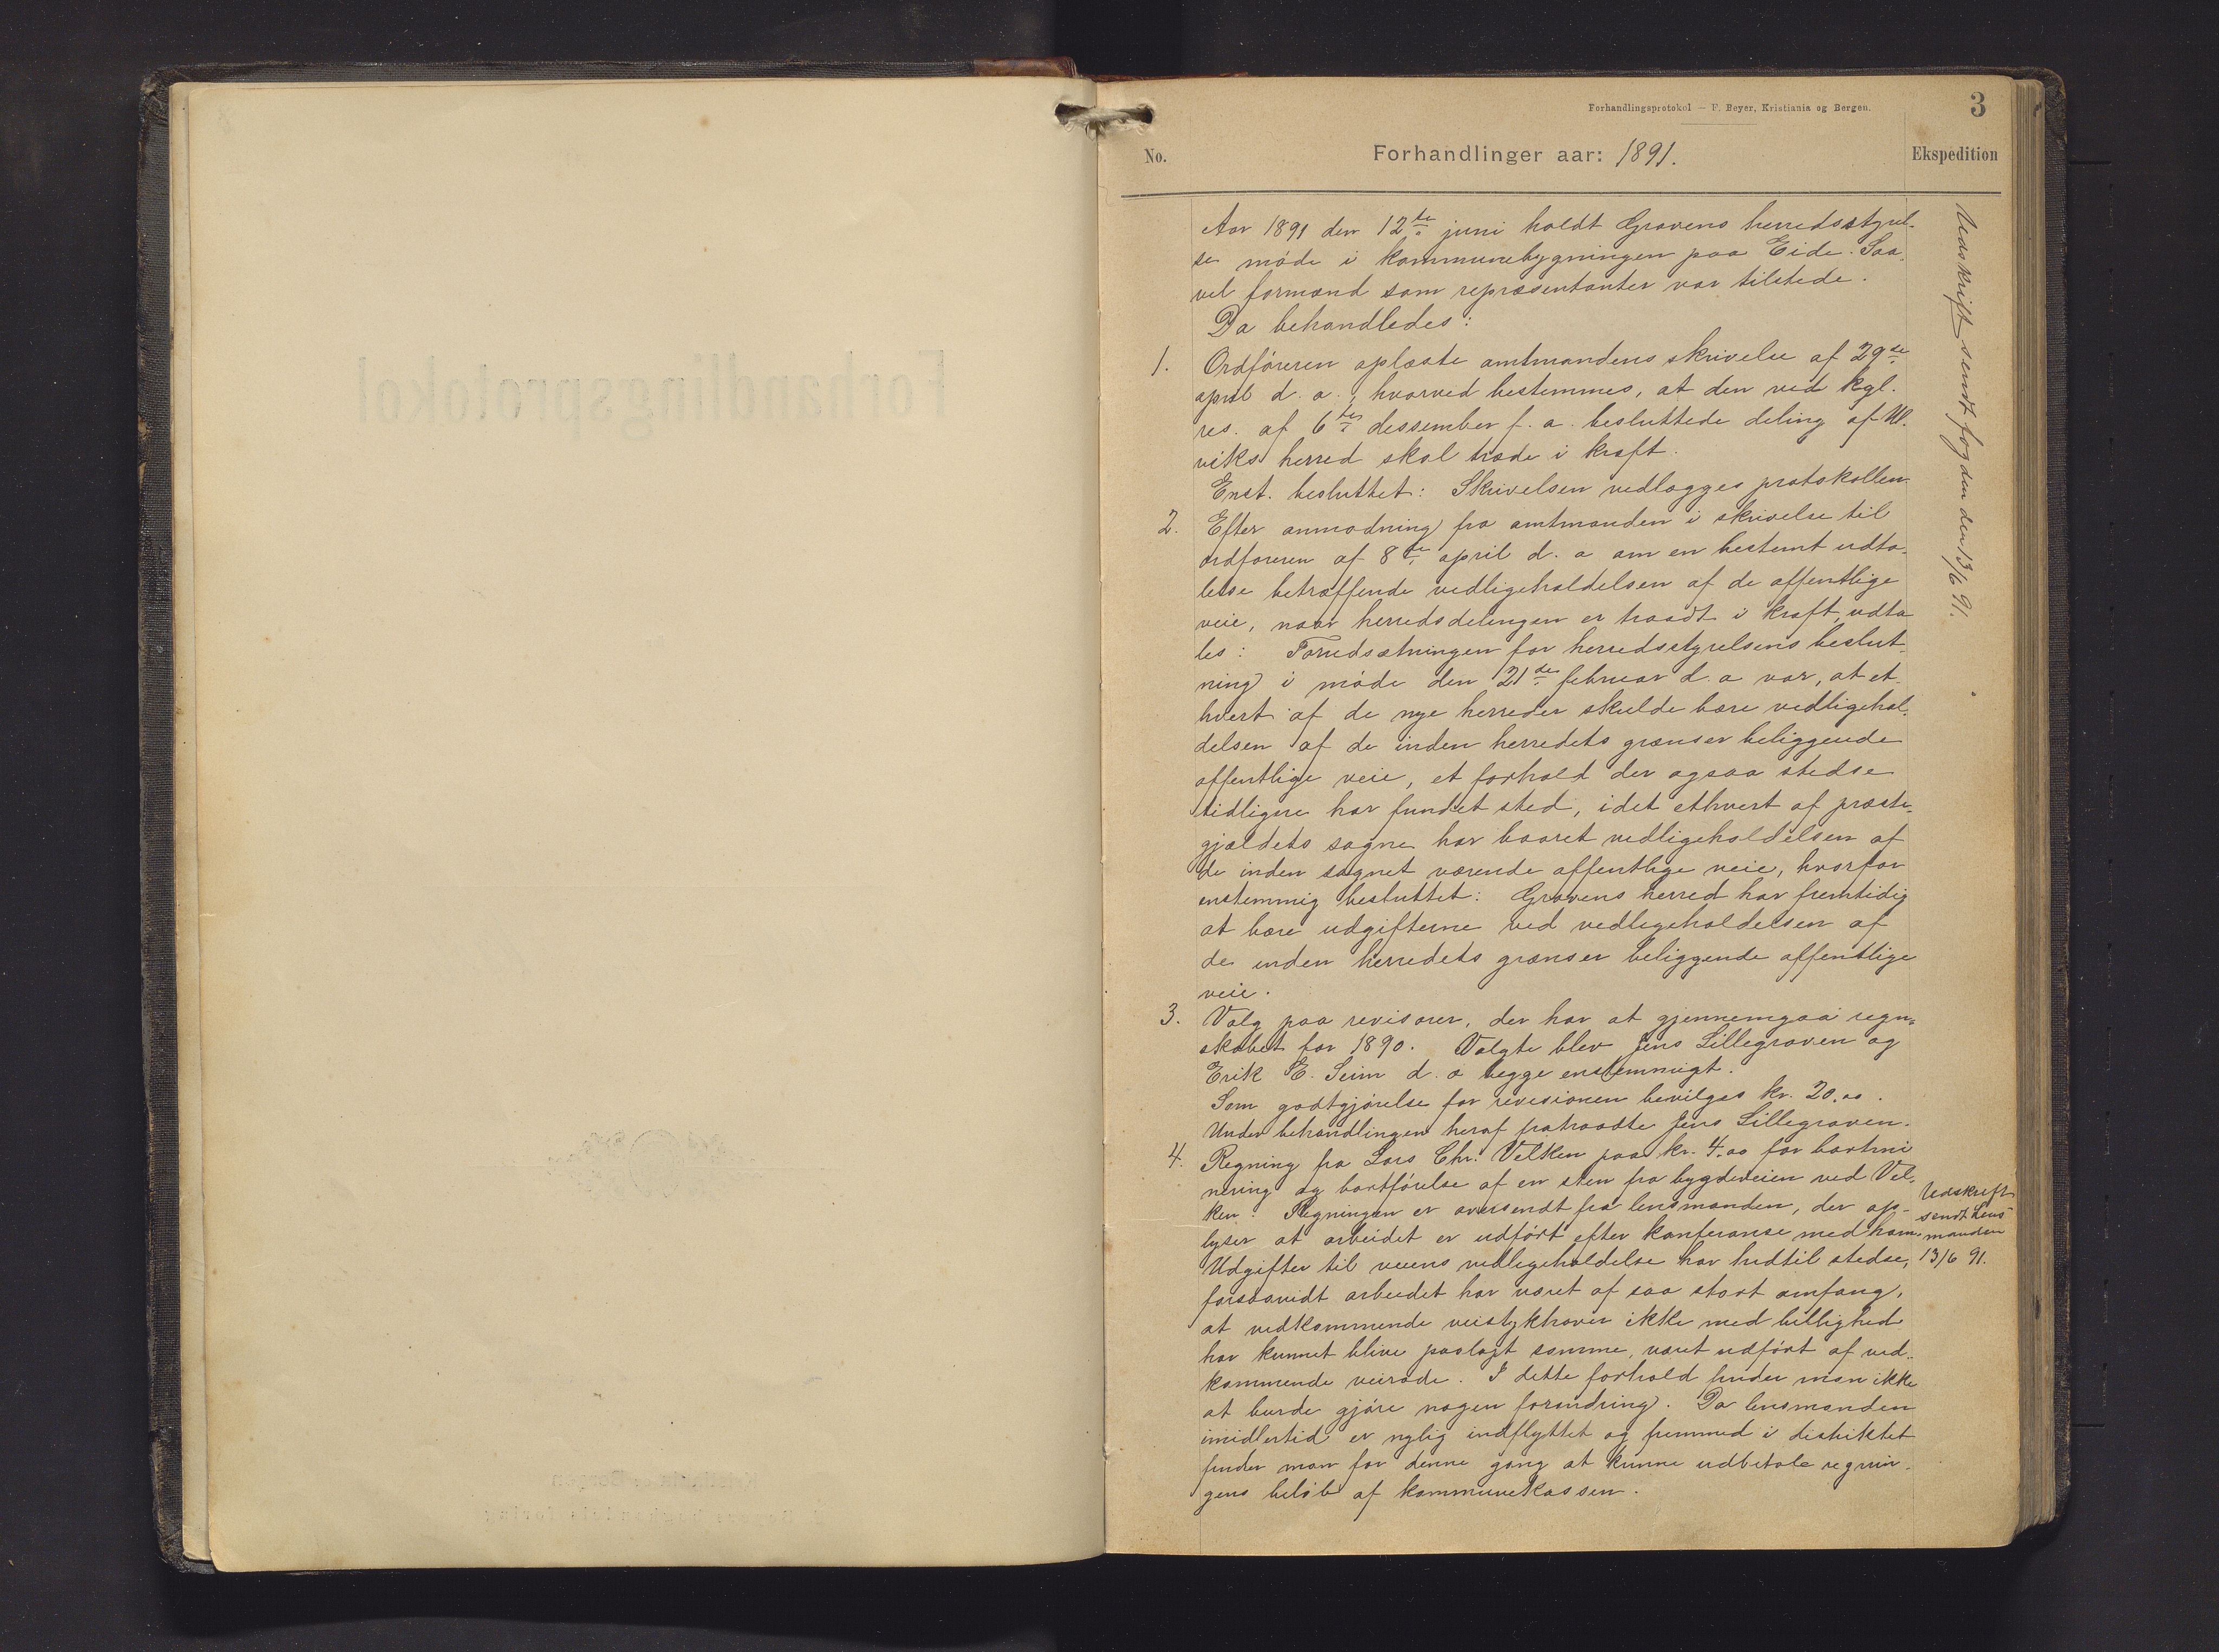 Forhandlingsprotokol
Forhandlingsprotokol — F. Beyer, Kristiania og Bergen.
3
No.
Forhandlinger aar: 1891.
Ekspedition
Aar 1891 den 12te juni holdt Gravens herredsstyrel-
se møde i kommunebygningen paa Eide. Saa-
vel formænd som repræsentanter var tilstede.
Da behandledes:
1. Ordføreren oplæste amtmandens skrivelse af 29de
april d. a., hvorved bestemmes, at den ved kgl.
res. af 6te dessember f. a. besluttede deling af Ul-
viks herred skal træde i kraft.
Enst. besluttet: Skrivelsen vedlægges protokollen.
2. Efter anmodning fra amtmanden i skrivelse til
ordføreren af 8de april d. a om en bestemt udta-
lelse betræffende vedligeholdelsen af de offentlige
veie, naar herredsdelingen er traadt i kraft, udta-
les: Forudsætningen for herredsstyrelsens beslut-
ning i møde den 21de februar d. a var, at et-
hvert af de nye herreder skulde bære vedligehol-
delsen af de inden herredets grænser beliggende
offentlige veie, et forhold der ogsaa stedse
tidligere har fundet sted, idet ethvert af præste-
gjældets sogne har baaret vedligeholdelsen af
de inden sognet værende offentlige veie, hvorfor
enstemmig besluttet: Gravens herred har fremtidig
at bære udgifterne ved vedligeholdelsen af
de inden herredets grænser beliggende offentlige
veie.
3. Valg paa revisorer, der har at gjennemgaa regn-
skabet for 1890. Valgte blev Jens Lillegraven og
Erik E. Seim d. æ begge enstemmigt.
Som godtgjørelse for revisionen bevilges kr. 20.00.
Under behandlingen heraf fratraadte Jens Lillegraven.
4. Regning fra Lars Chr. Velken paa kr. 4.00 for bortmi
nering og bortførelse af en sten fra bygdeveien ved Vel-
ken. Regningen er oversendt fra lensmanden, der op-
lyser at arbeidet er udført efter konferanse med ham.
Udgifter til veiens vedligeholdelse har hidtil stedse,
forsaavidt arbeidet har været af saa stort omfang,
at vedkommende veistykhaver ikke med billighed
har kunnet blive paalagt samme, været udført af ved-
kommende veirode. I dette forhold finder man ikke
at burde gjøre nogen forandring. Da lensmanden
imidlertid er nylig indflyttet og fremmed i distriktet
finder man for denne gang at kunne udbetale regnin-
gens beløb af kommunekassen.
Udskrift sendt fogden den 13/6 91.
Udskrift
sendt Lens-
manden
13/6 91.